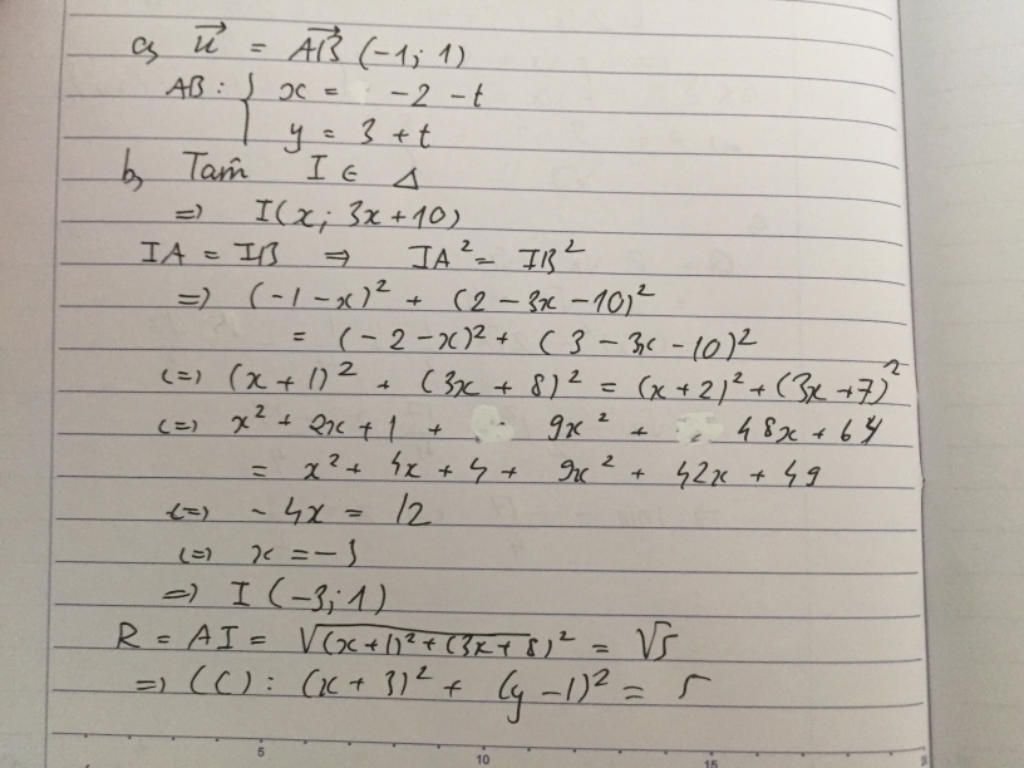 a, u⃗ = AB⃗ (-1; 1)
AB: { x = -2 - t
y = 3 + t
b, Tâm I ∈ Δ
=> I(x; 3x+10)
IA = IB => IA² = IB²
=> (-1-x)² + (2-3x-10)²
= (-2-x)² + (3-3x-10)²
<=> (x+1)² + (3x+8)² = (x+2)² + (3x+7)²
<=> x² + 2x + 1 + 9x² + 48x + 64
= x² + 4x + 4 + 9x² + 42x + 49
<=> -4x = 12
<=> x = -3
=> I(-3; 1)
R = AI = √(x+1)² + (3x+8)² = √5
=> (C): (x+3)² + (y-1)² = 5
5 10 15